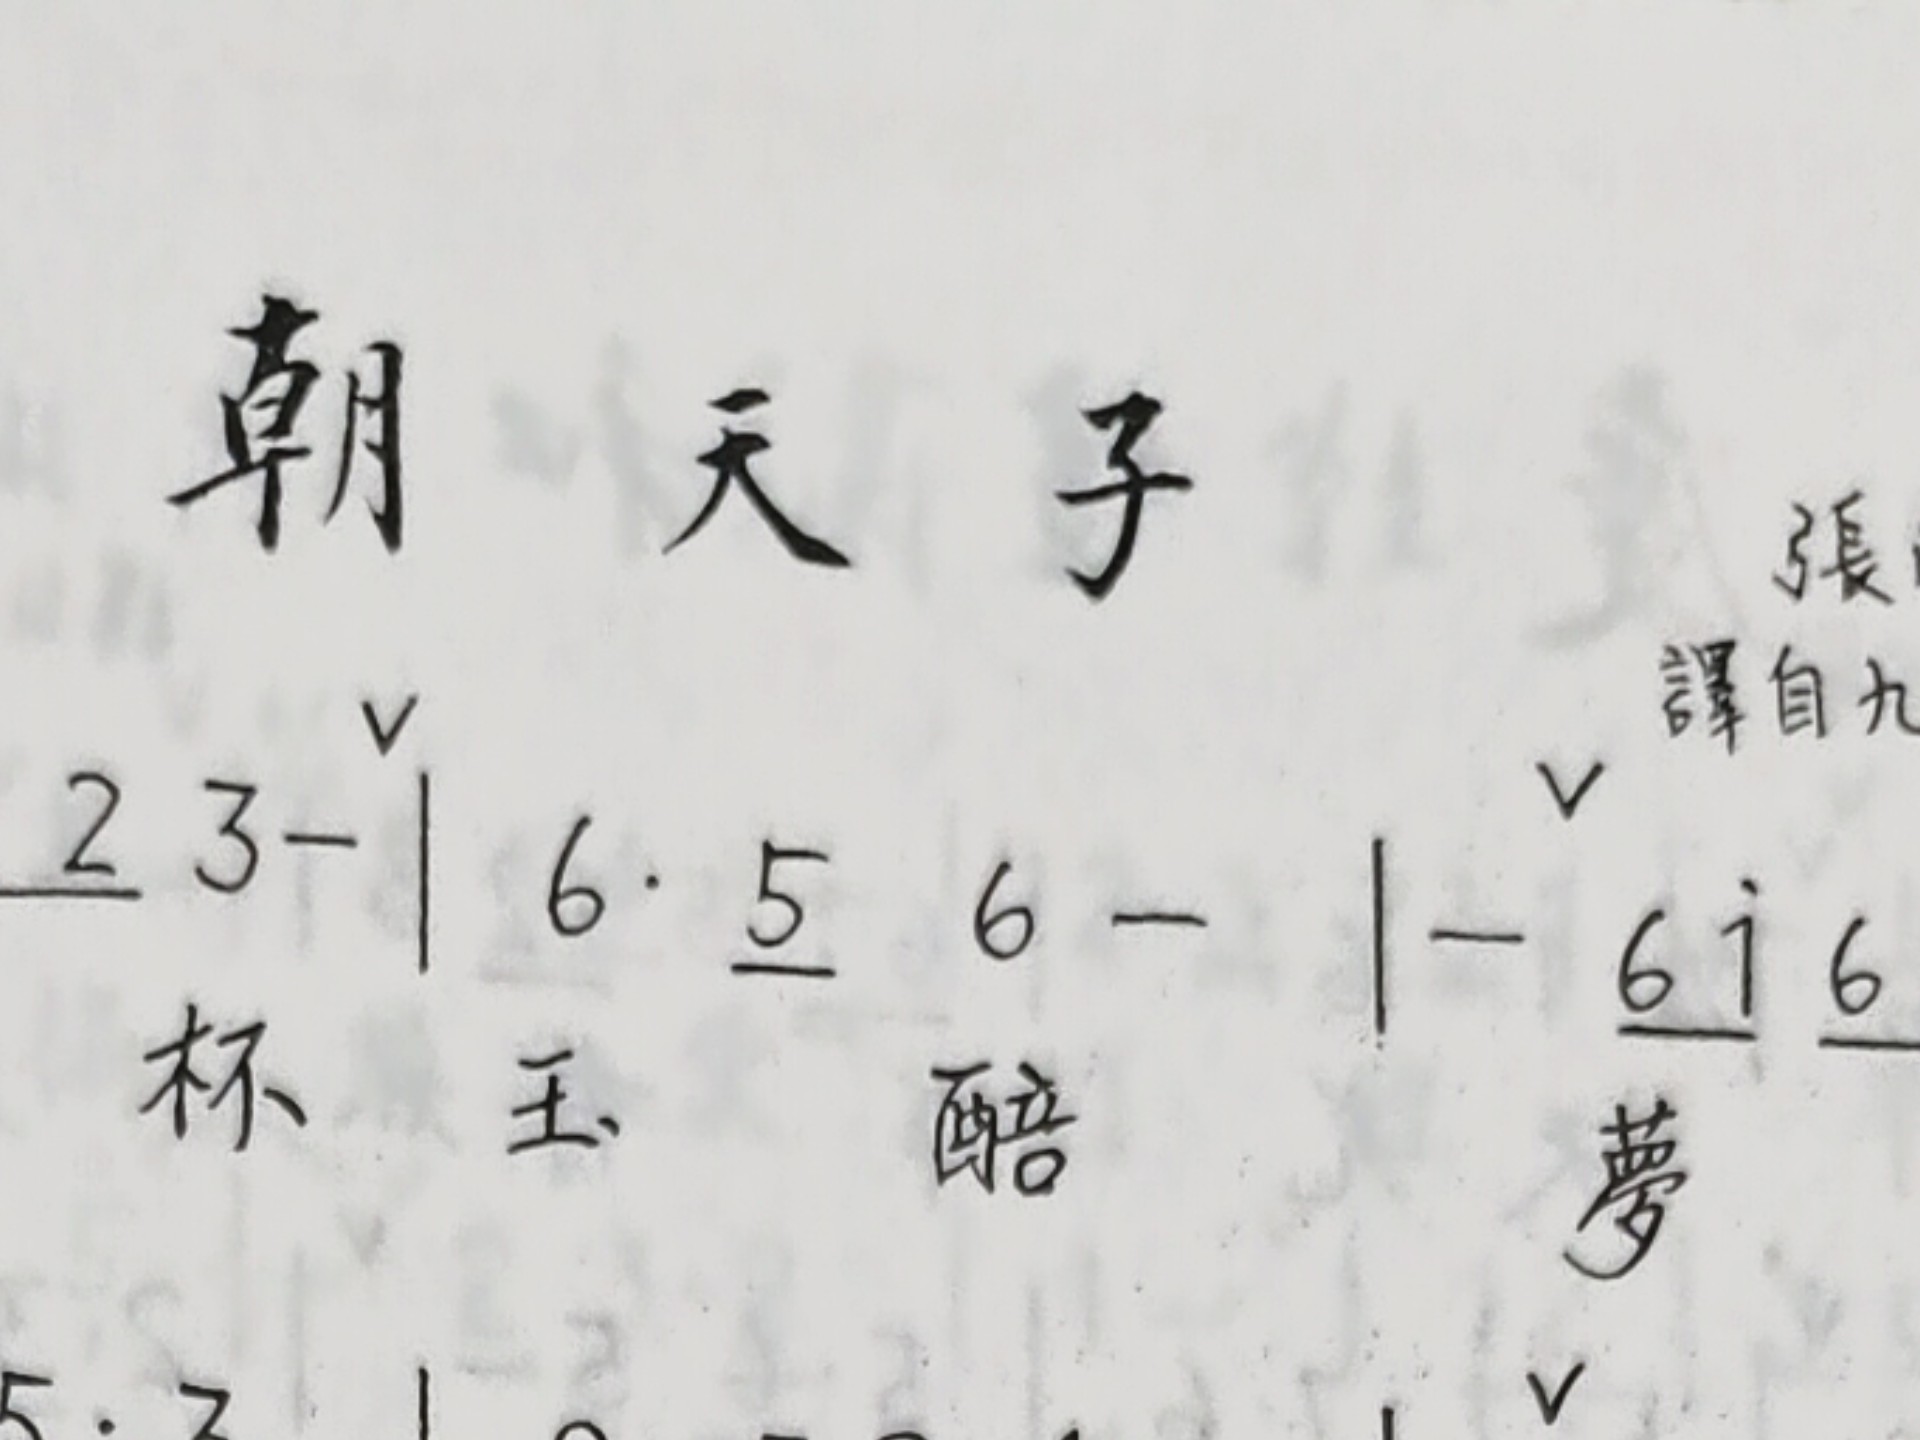 朝天子
張
譯自九
2 3 - | 6 · 5 6 - | - 6 i̇ 6
杯 玉 醅 夢
5 · 3 |